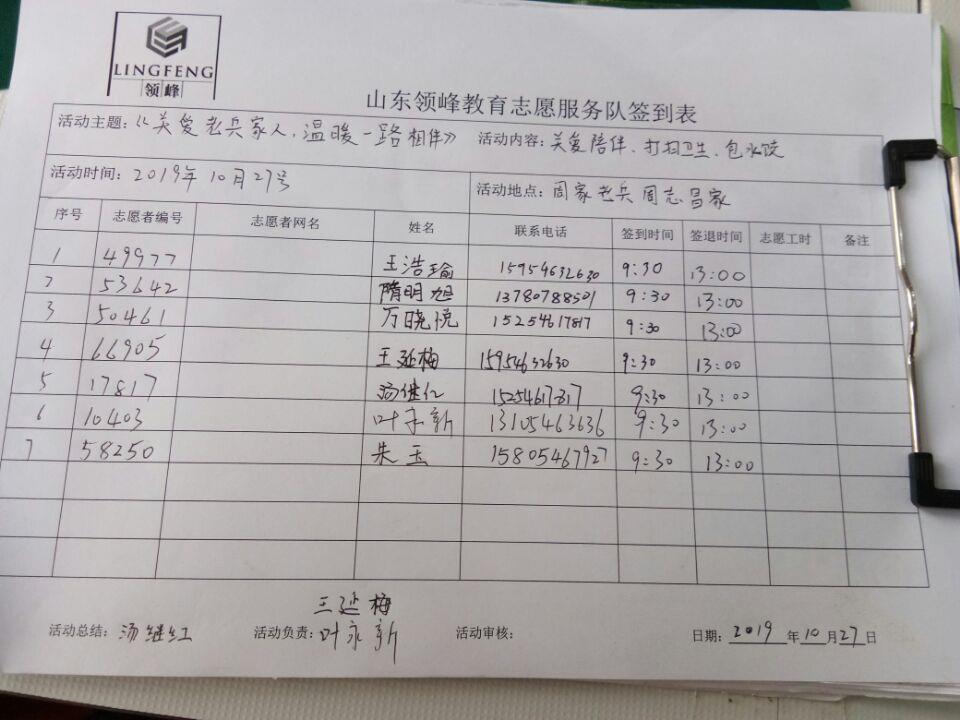 LINGFENG
领峰
山东领峰教育志愿服务队签到表
活动主题:《关爱老兵家人,温暖一路相伴》 活动内容:关爱陪伴、打扫卫生、包水饺
活动时间:2019年10月27号 活动地点:周家老兵周志昌家
序号 志愿者编号 志愿者网名 姓名 联系电话 签到时间 签退时间 志愿工时 备注
1 49977 王浩瑜 15954632630 9:30 13:00
2 53642 隋明旭 13780788501 9:30 13:00
3 50461 万晓悦 15254617817 9:30 13:00
4 66905 王延梅 15954632630 9:30 13:00
5 17817 汤继红 15254617817 9:30 13:00
6 10403 叶永新 13105463636 9:30 13:00
7 58250 朱玉 15805467927 9:30 13:00
王延梅
活动总结:汤继红 活动负责:叶永新 活动审核: 日期:2019年10月27日